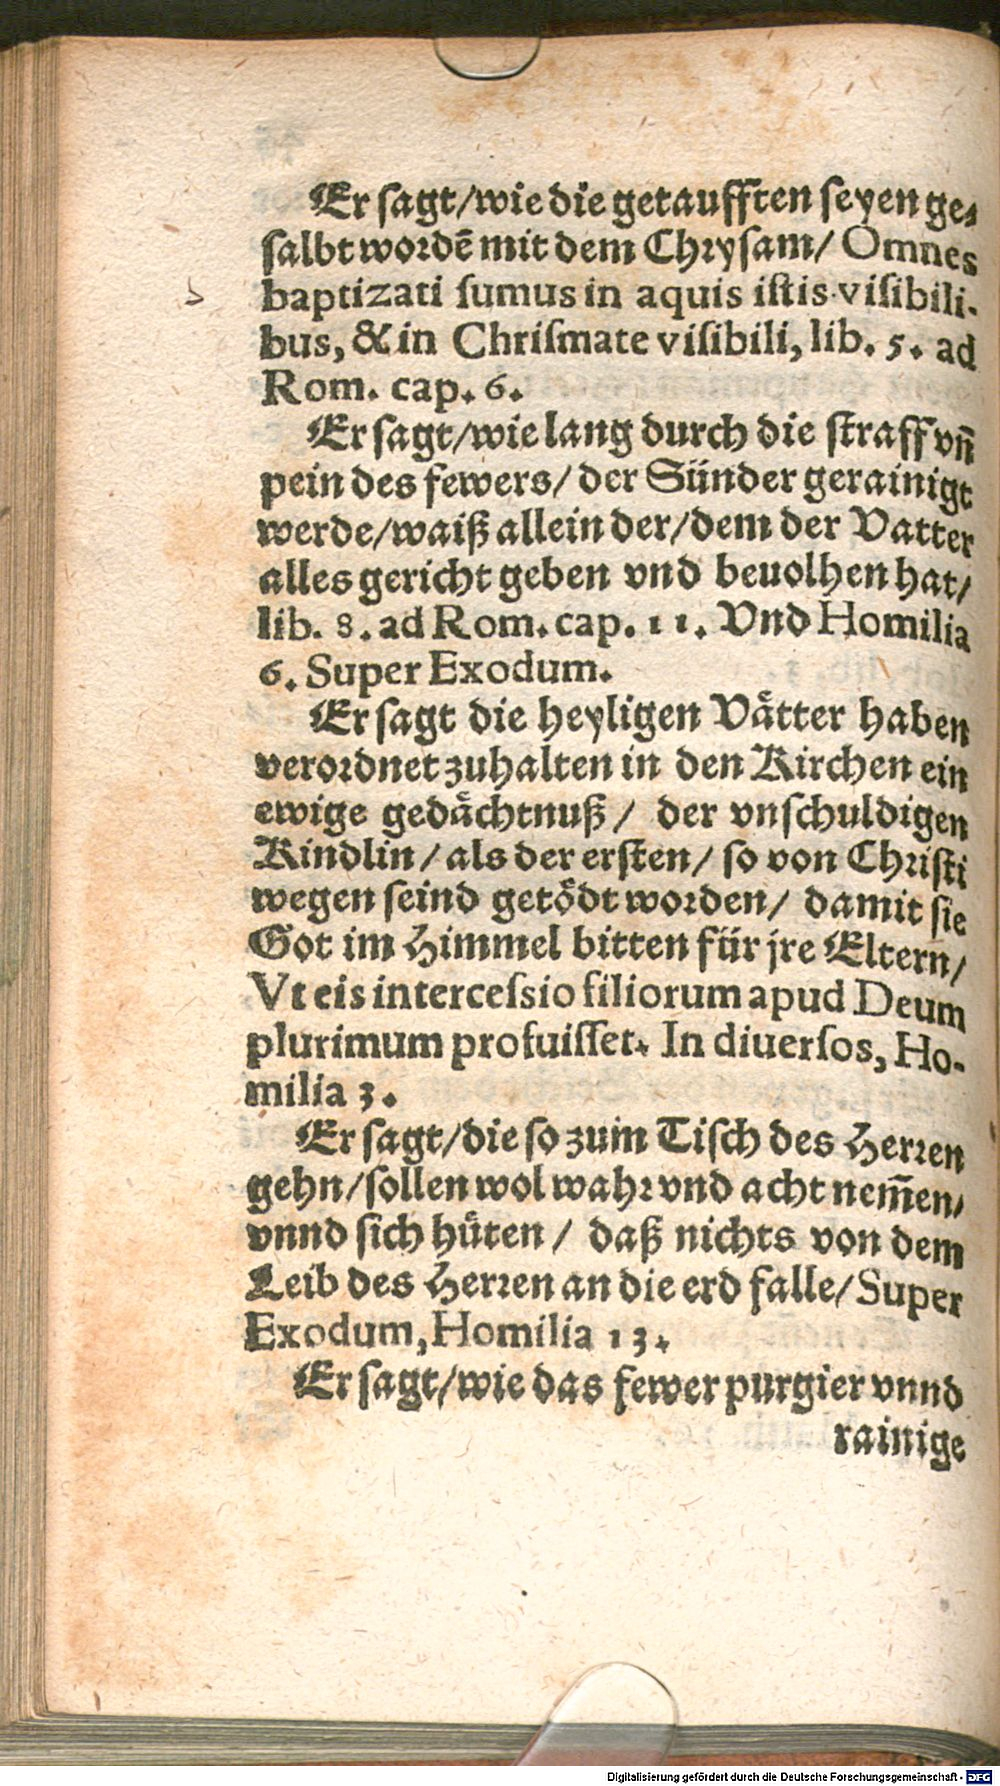 Er sagt/wie die getaufften seyen ge⸗
salbt wordē mit dem Chrysam/ Omnes
baptizati sumus in aquis istis visibili-
bus, & in Chrismate visibili, lib. 5. ad
Rom. cap. 6.
Er sagt/wie lang durch die straff vñ
pein des fewers/ der Sünder gerainigt
werde/waiß allein der/dem der Vatter
alles gericht geben vnd beuolhen hat/
lib. 8. ad Rom. cap. 11. Vnd Homilia
6. Super Exodum.
Er sagt die heyligen Vätter haben
verordnet zuhalten in den Kirchen ein
ewige gedächtnuß / der vnschuldigen
Kindlin / als der ersten/ so von Christi
wegen seind getödt worden/ damit sie
Got im Himmel bitten für jre Eltern/
Vt eis intercessio filiorum apud Deum
plurimum profuisset. In diuersos, Ho-
milia 3.
Er sagt/die so zum Tisch des Herren
gehn/sollen wol wahr vnd acht nem̄en/
vnnd sich hüten / daß nichts von dem
Leib des Herren an die erd falle/Super
Exodum, Homilia 13.
Er sagt/wie das fewer purgier vnnd
rainige
Digitalisierung gefördert durch die Deutsche Forschungsgemeinschaft - DFG